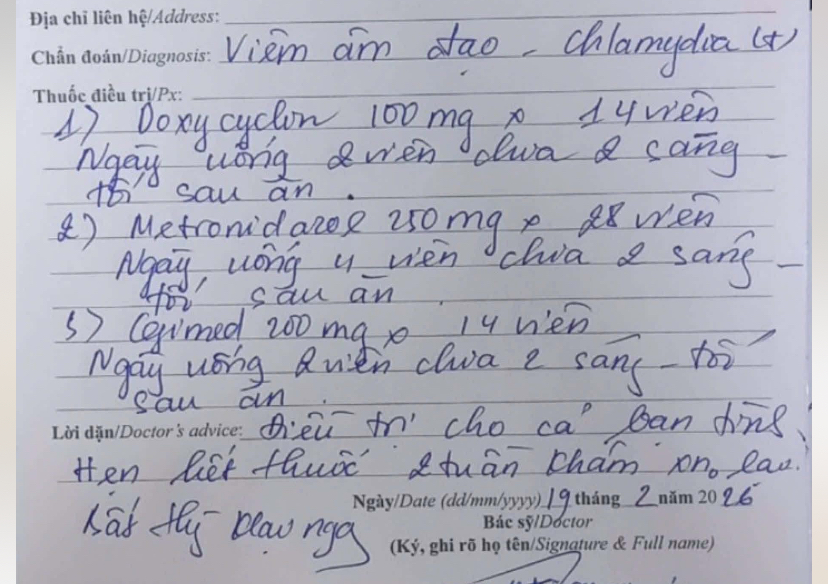 Địa chỉ liên hệ/Address:
Chẩn đoán/Diagnosis: Viêm âm đạo - Chlamydia (+)
Thuốc điều trị/Px:
1) Doxycyclin 100 mg x 14 viên
Ngày uống 2 viên chia 2 sáng -
tối sau ăn.
2) Metronidazol 250 mg x 28 viên
Ngày uống 4 viên chia 2 sáng -
tối sau ăn.
3) 200 mg x 14 viên
Ngày uống 2 viên chia 2 sáng - tối
sau ăn.
Lời dặn/Doctor's advice: Điều trị cho cả bạn tình.
Hẹn hết thuốc 2 tuần khám
Ngày/Date (dd/mm/yyyy) 19 tháng 2 năm 2026
Bất kỳ
Bác sỹ/Doctor
(Ký, ghi rõ họ tên/Signature & Full name)